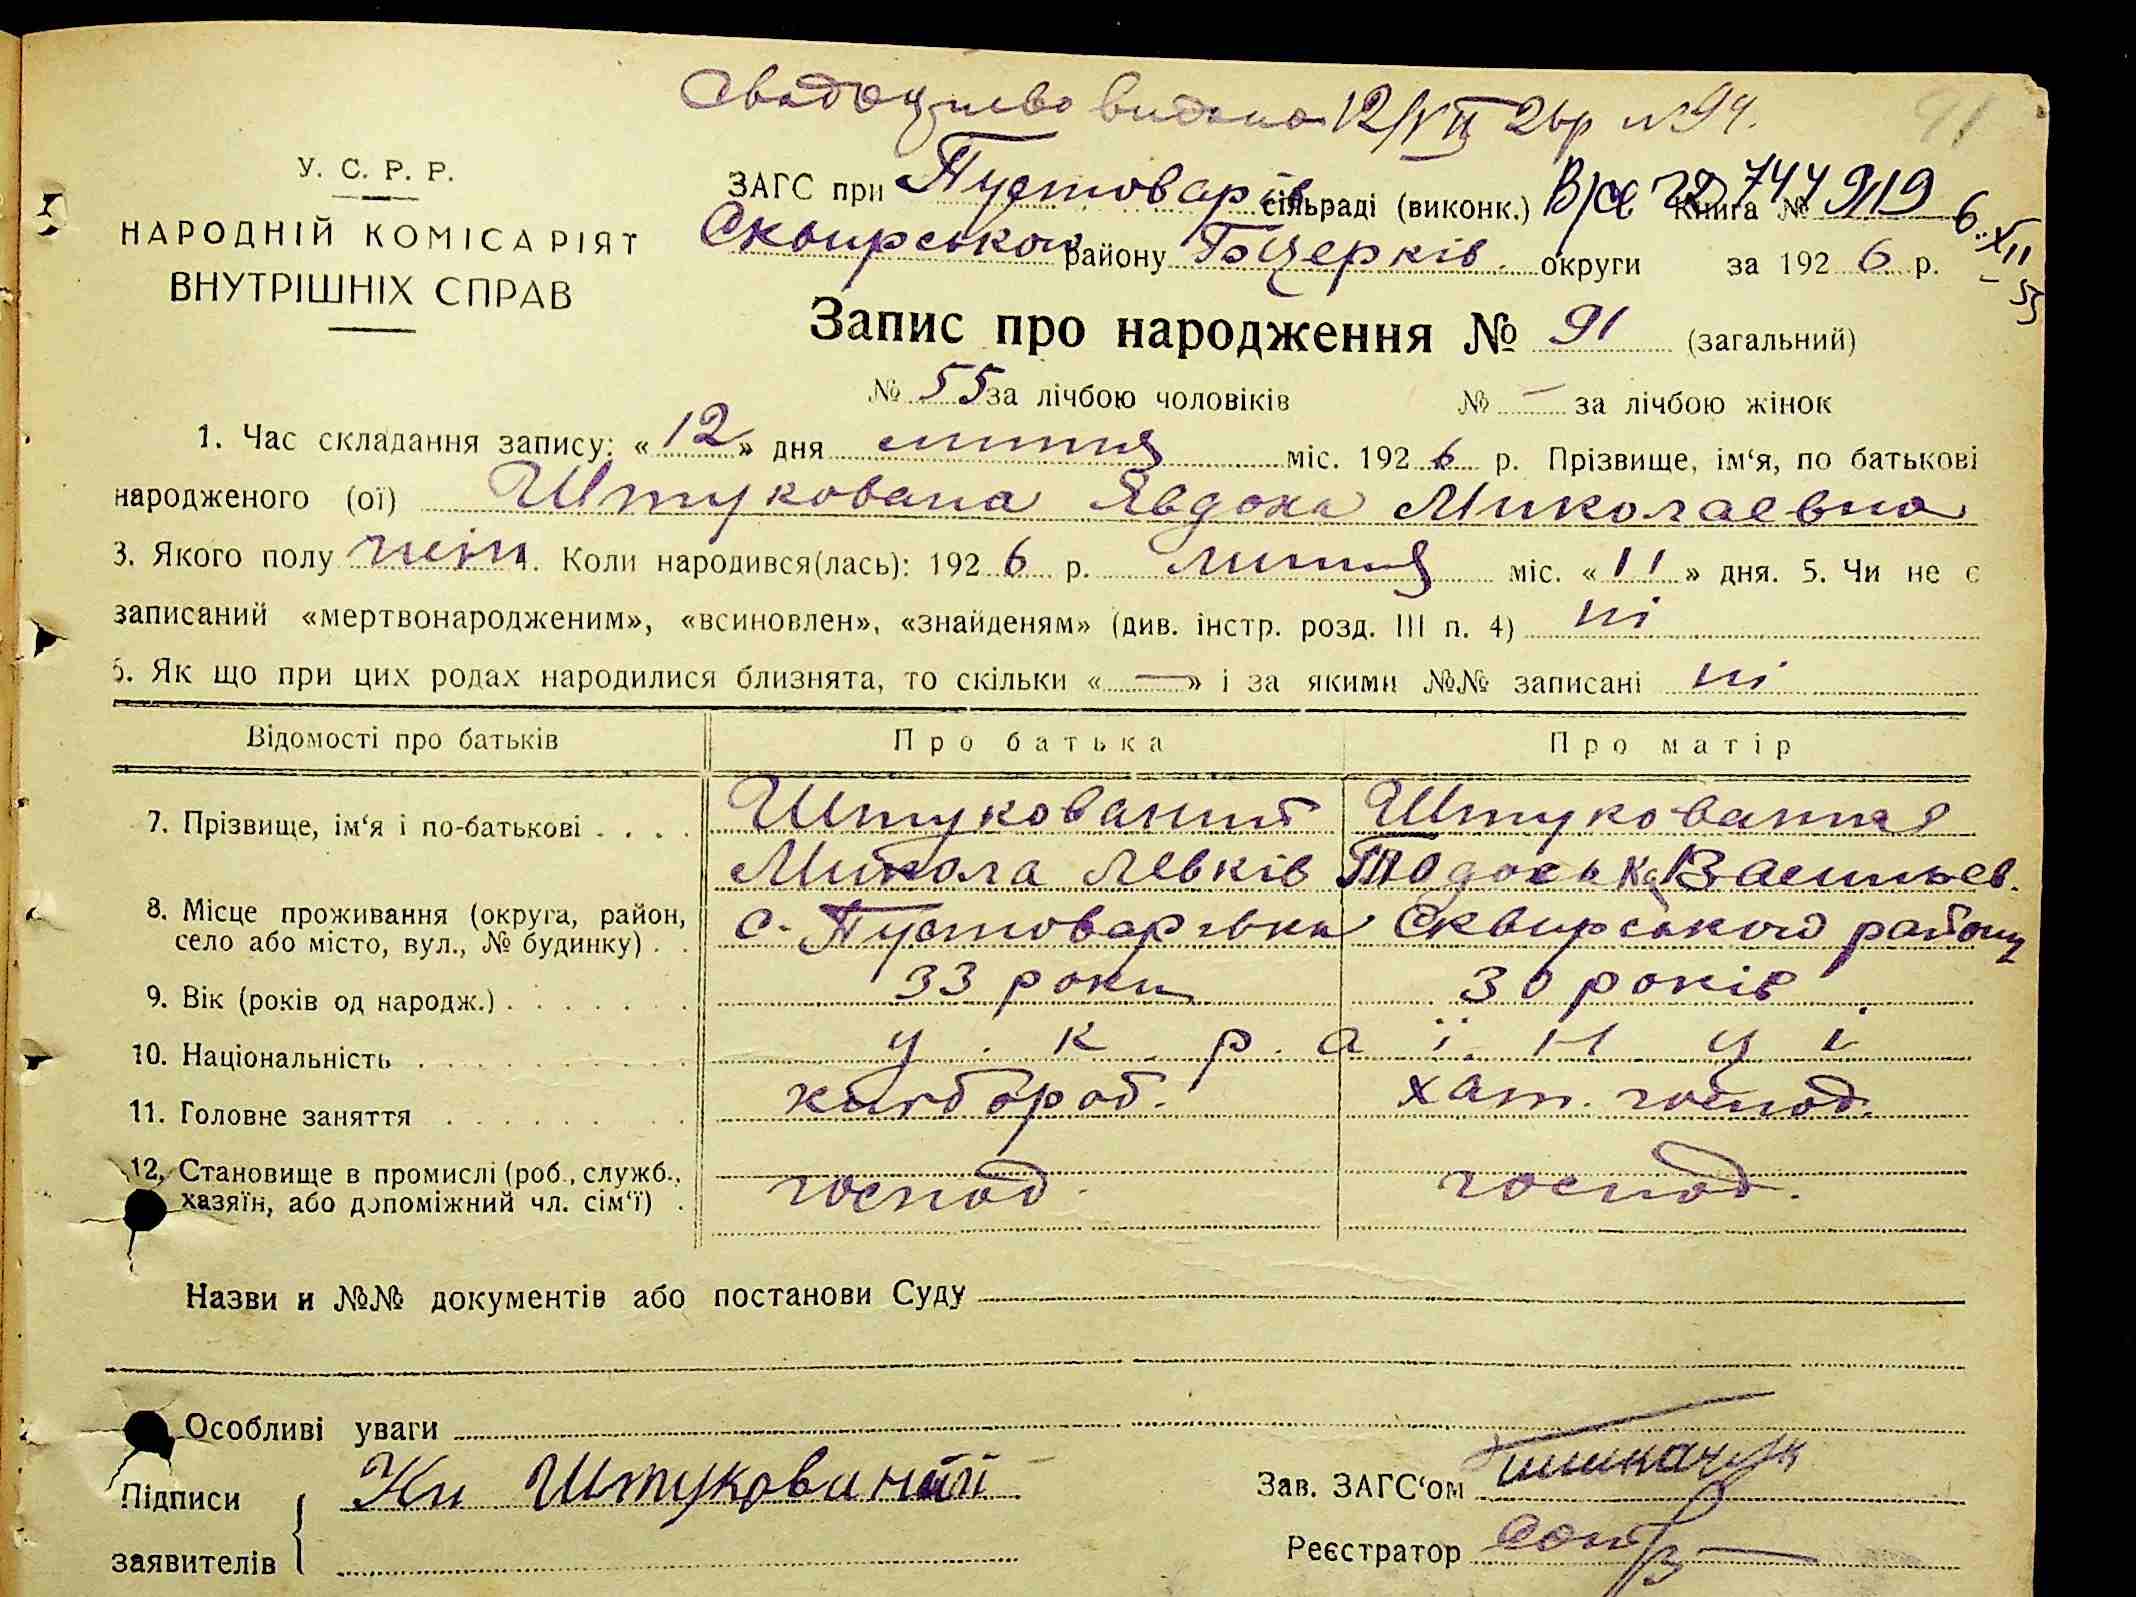 Свідоцтво видано 12/VII 26р №94.
91
У. С. Р. Р.
НАРОДНІЙ КОМІСАРІЯТ
ВНУТРІШНІХ СПРАВ
ЗАГС при Пустоварів сільраді (виконк.) Книга № 
6.XII
- 55
Сквирського району Б Церків. округи за 1926 р.
Запис про народження № 91 (загальний)
№ 55 за лічбою чоловіків № — за лічбою жінок
1. Час складання запису: «12» дня липня міс. 1926 р. Прізвище, ім‘я, по батькові
народженого (ої) Штукована Явдоха Миколаевна
3. Якого полу жін. Коли народився(лась): 1926 р. липня міс. «11» дня. 5. Чи не є
записаний «мертвонародженим», «всиновлен», «знайденям» (див. інстр. розд. III п. 4) ні
6. Як що при цих родах народилися близнята, то скільки «—» і за якими №№ записані ні
Відомості про батьків Про батька Про матір
7. Прізвище, ім‘я і по-батькові . . . . Штукований Штукованная
Микола Левків Тодоська Васильев.
8. Місце проживання (округа, район,
село або місто, вул., № будинку) . . с. Пустоварівка Сквирського району
9. Вік (років од народж.) . . . . . . . 33 роки 30 років
10. Національність . . . . . . . . . . українці
11. Головне заняття . . . . . . . . хлібороб. хат. господ.
12. Становище в промислі (роб., служб.,
хазяїн, або допоміжний чл. сім‘ї) . господ. господ.
Назви и №№ документів або постанови Суду
Особливі уваги
Підписи Штукований Зав. ЗАГС‘ом
заявителів Реєстратор